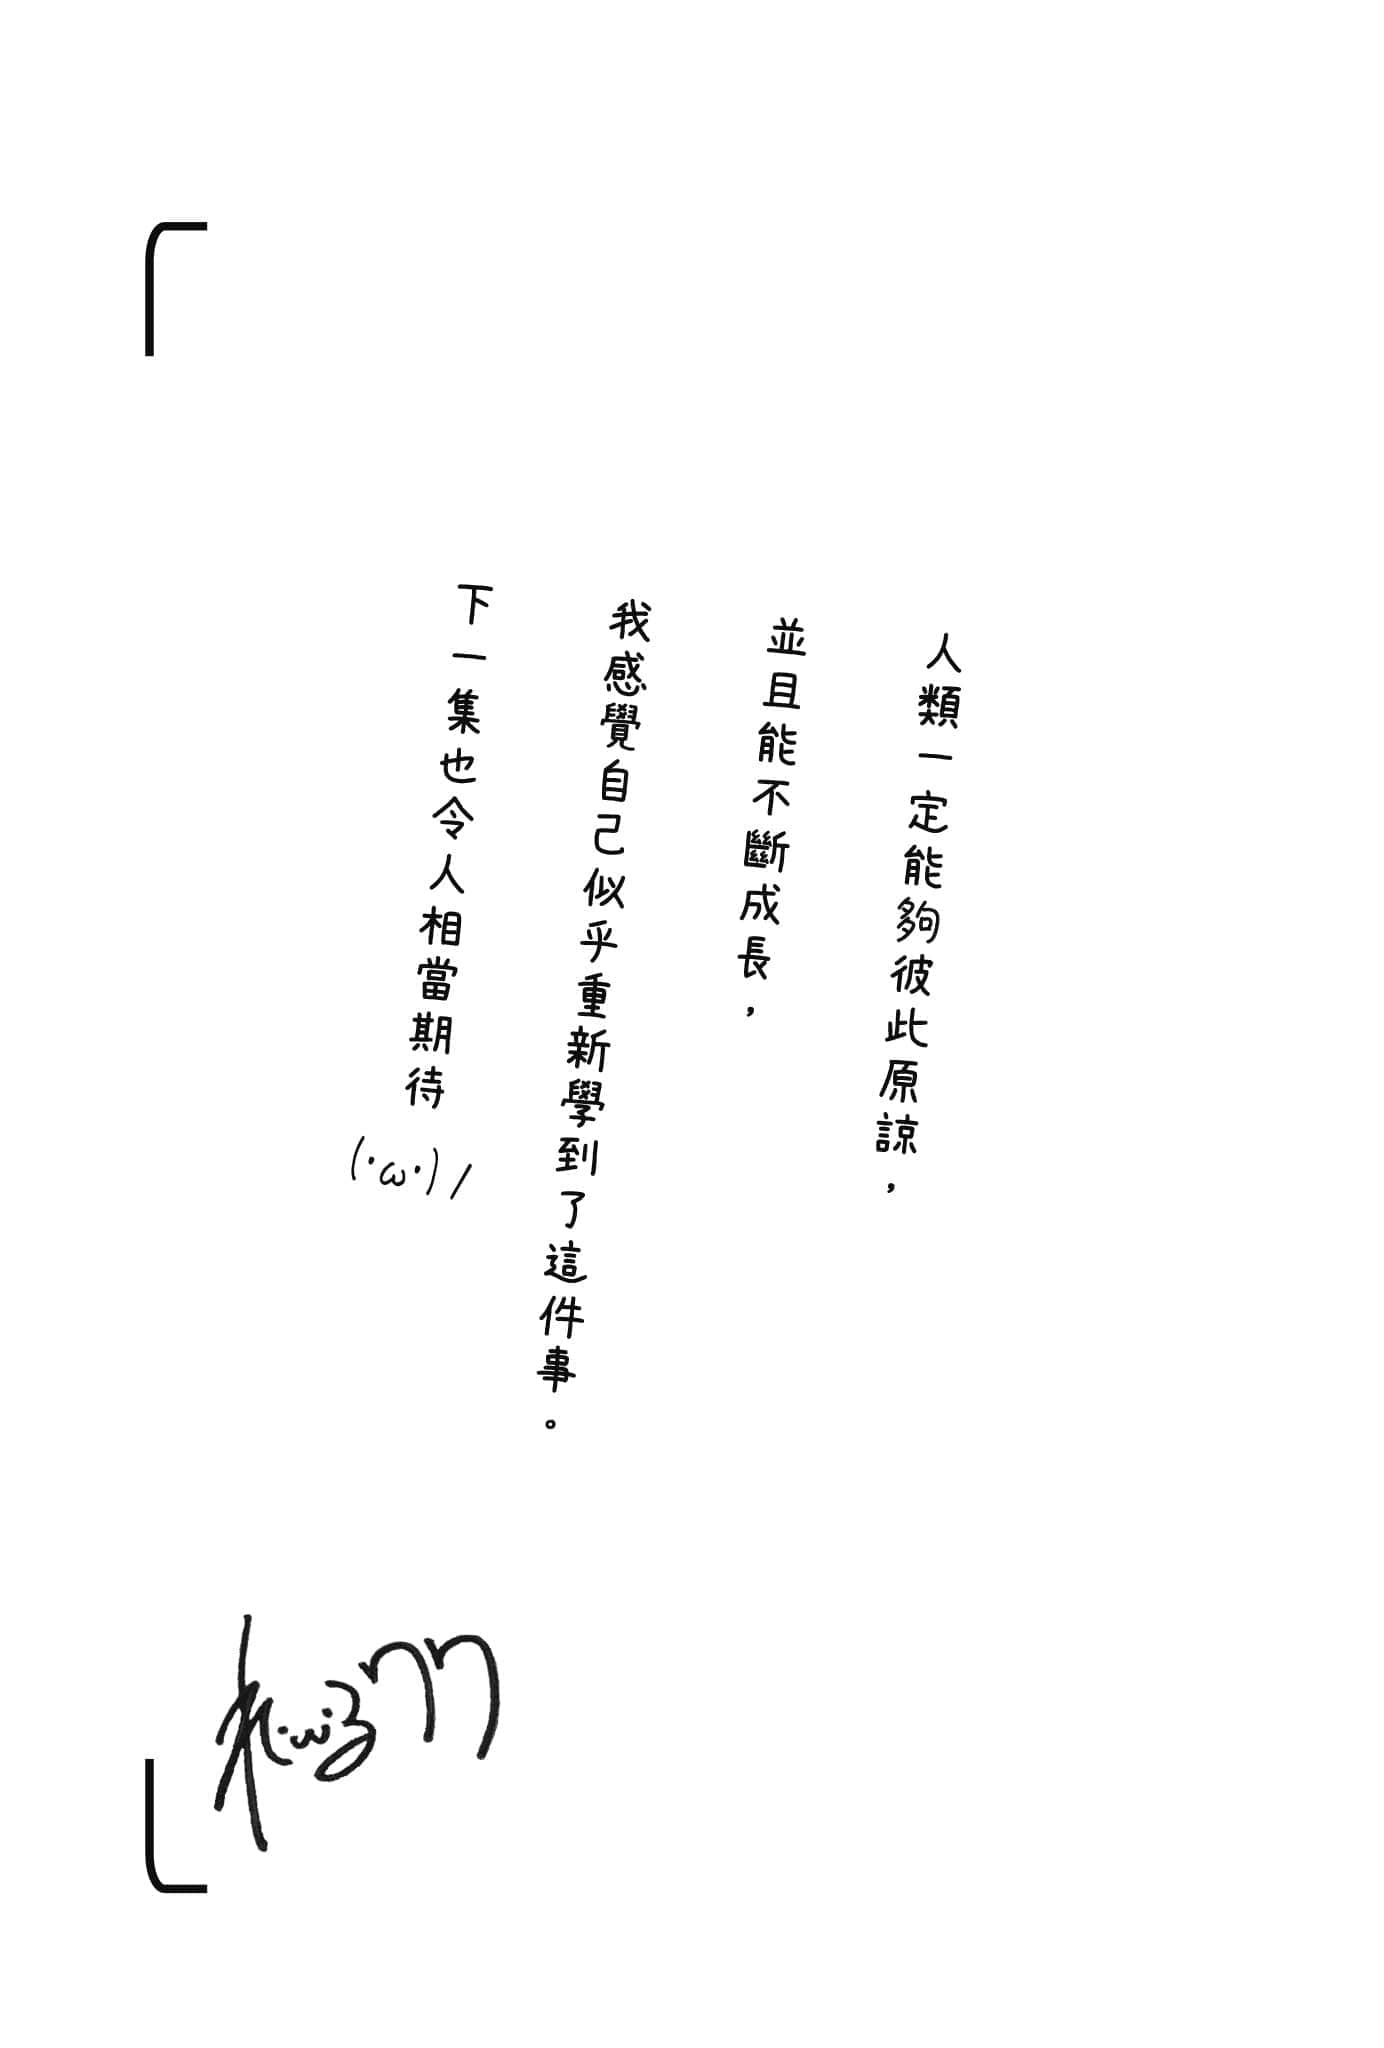 人類一定能夠彼此原諒，
並且能不斷成長，
我感覺自己似乎重新學到了這件事。
下一集也令人相當期待
(・ω・)/